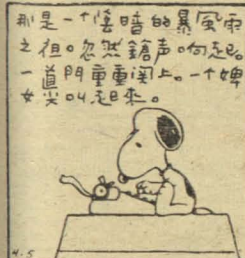 那是一个陰暗的暴風雨
之夜。忽然鎗声。响起。
一道門重重関上。一个婢
女尖叫起來。
4.5